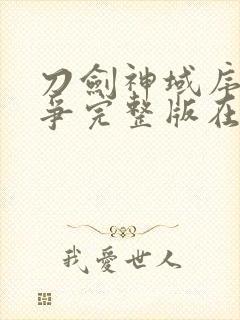 刀劍神域序
爭完整版在
我愛世人